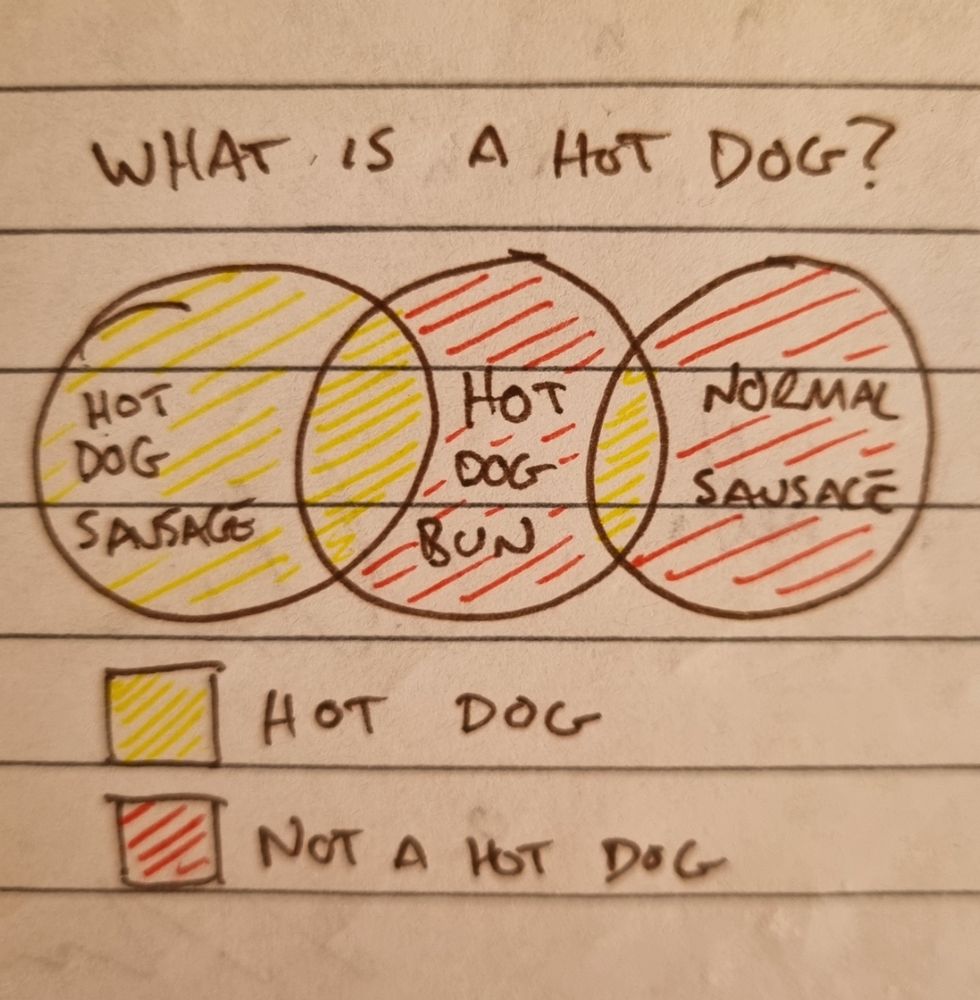 WHAT IS A HOT DOG?
HOT
DOG
SAUSAGE
HOT
DOG
BUN
NORMAL
SAUSAGE
HOT DOG
NOT A HOT DOG